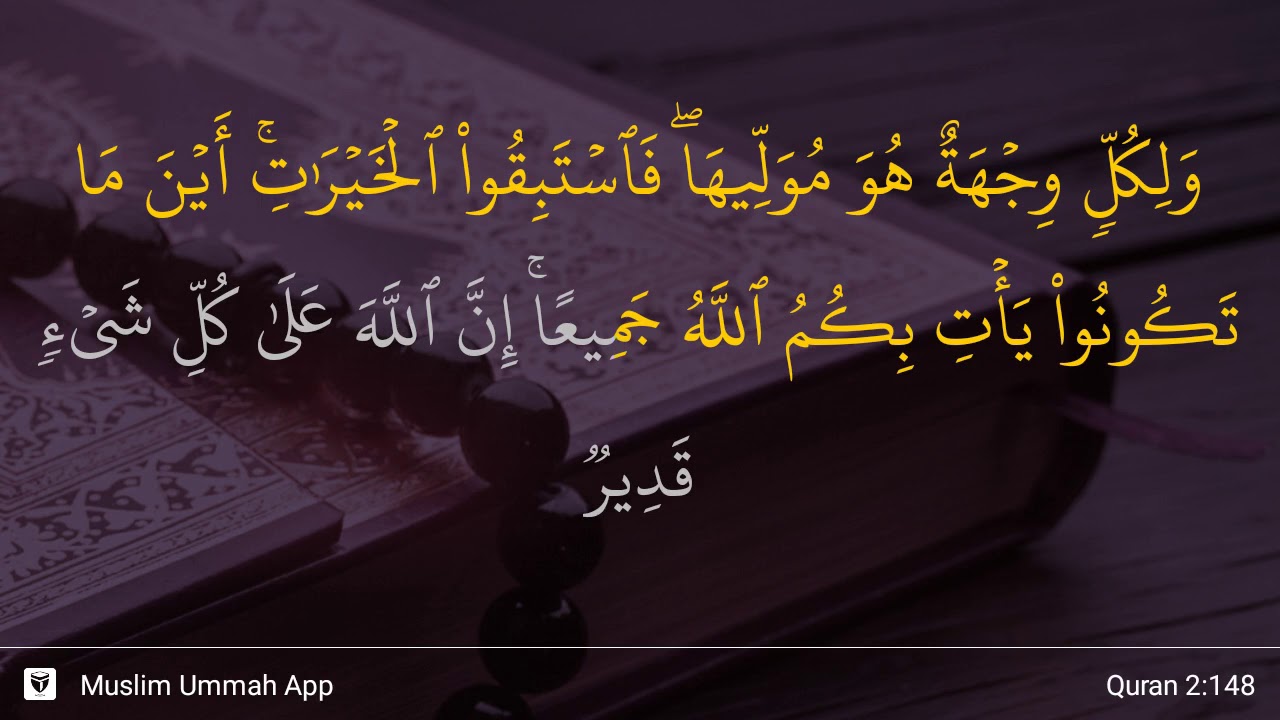 وَلِكُلٍّۢ وِجْهَةٌ هُوَ مُوَلِّيهَا ۖ فَٱسْتَبِقُوا۟ ٱلْخَيْرَٰتِ ۚ أَيْنَ مَا
تَكُونُوا۟ يَأْتِ بِكُمُ ٱللَّهُ جَمِيعًا ۚ إِنَّ ٱللَّهَ عَلَىٰ كُلِّ شَىْءٍۢ
قَدِيرٌۭ
Muslim Ummah App
Quran 2:148